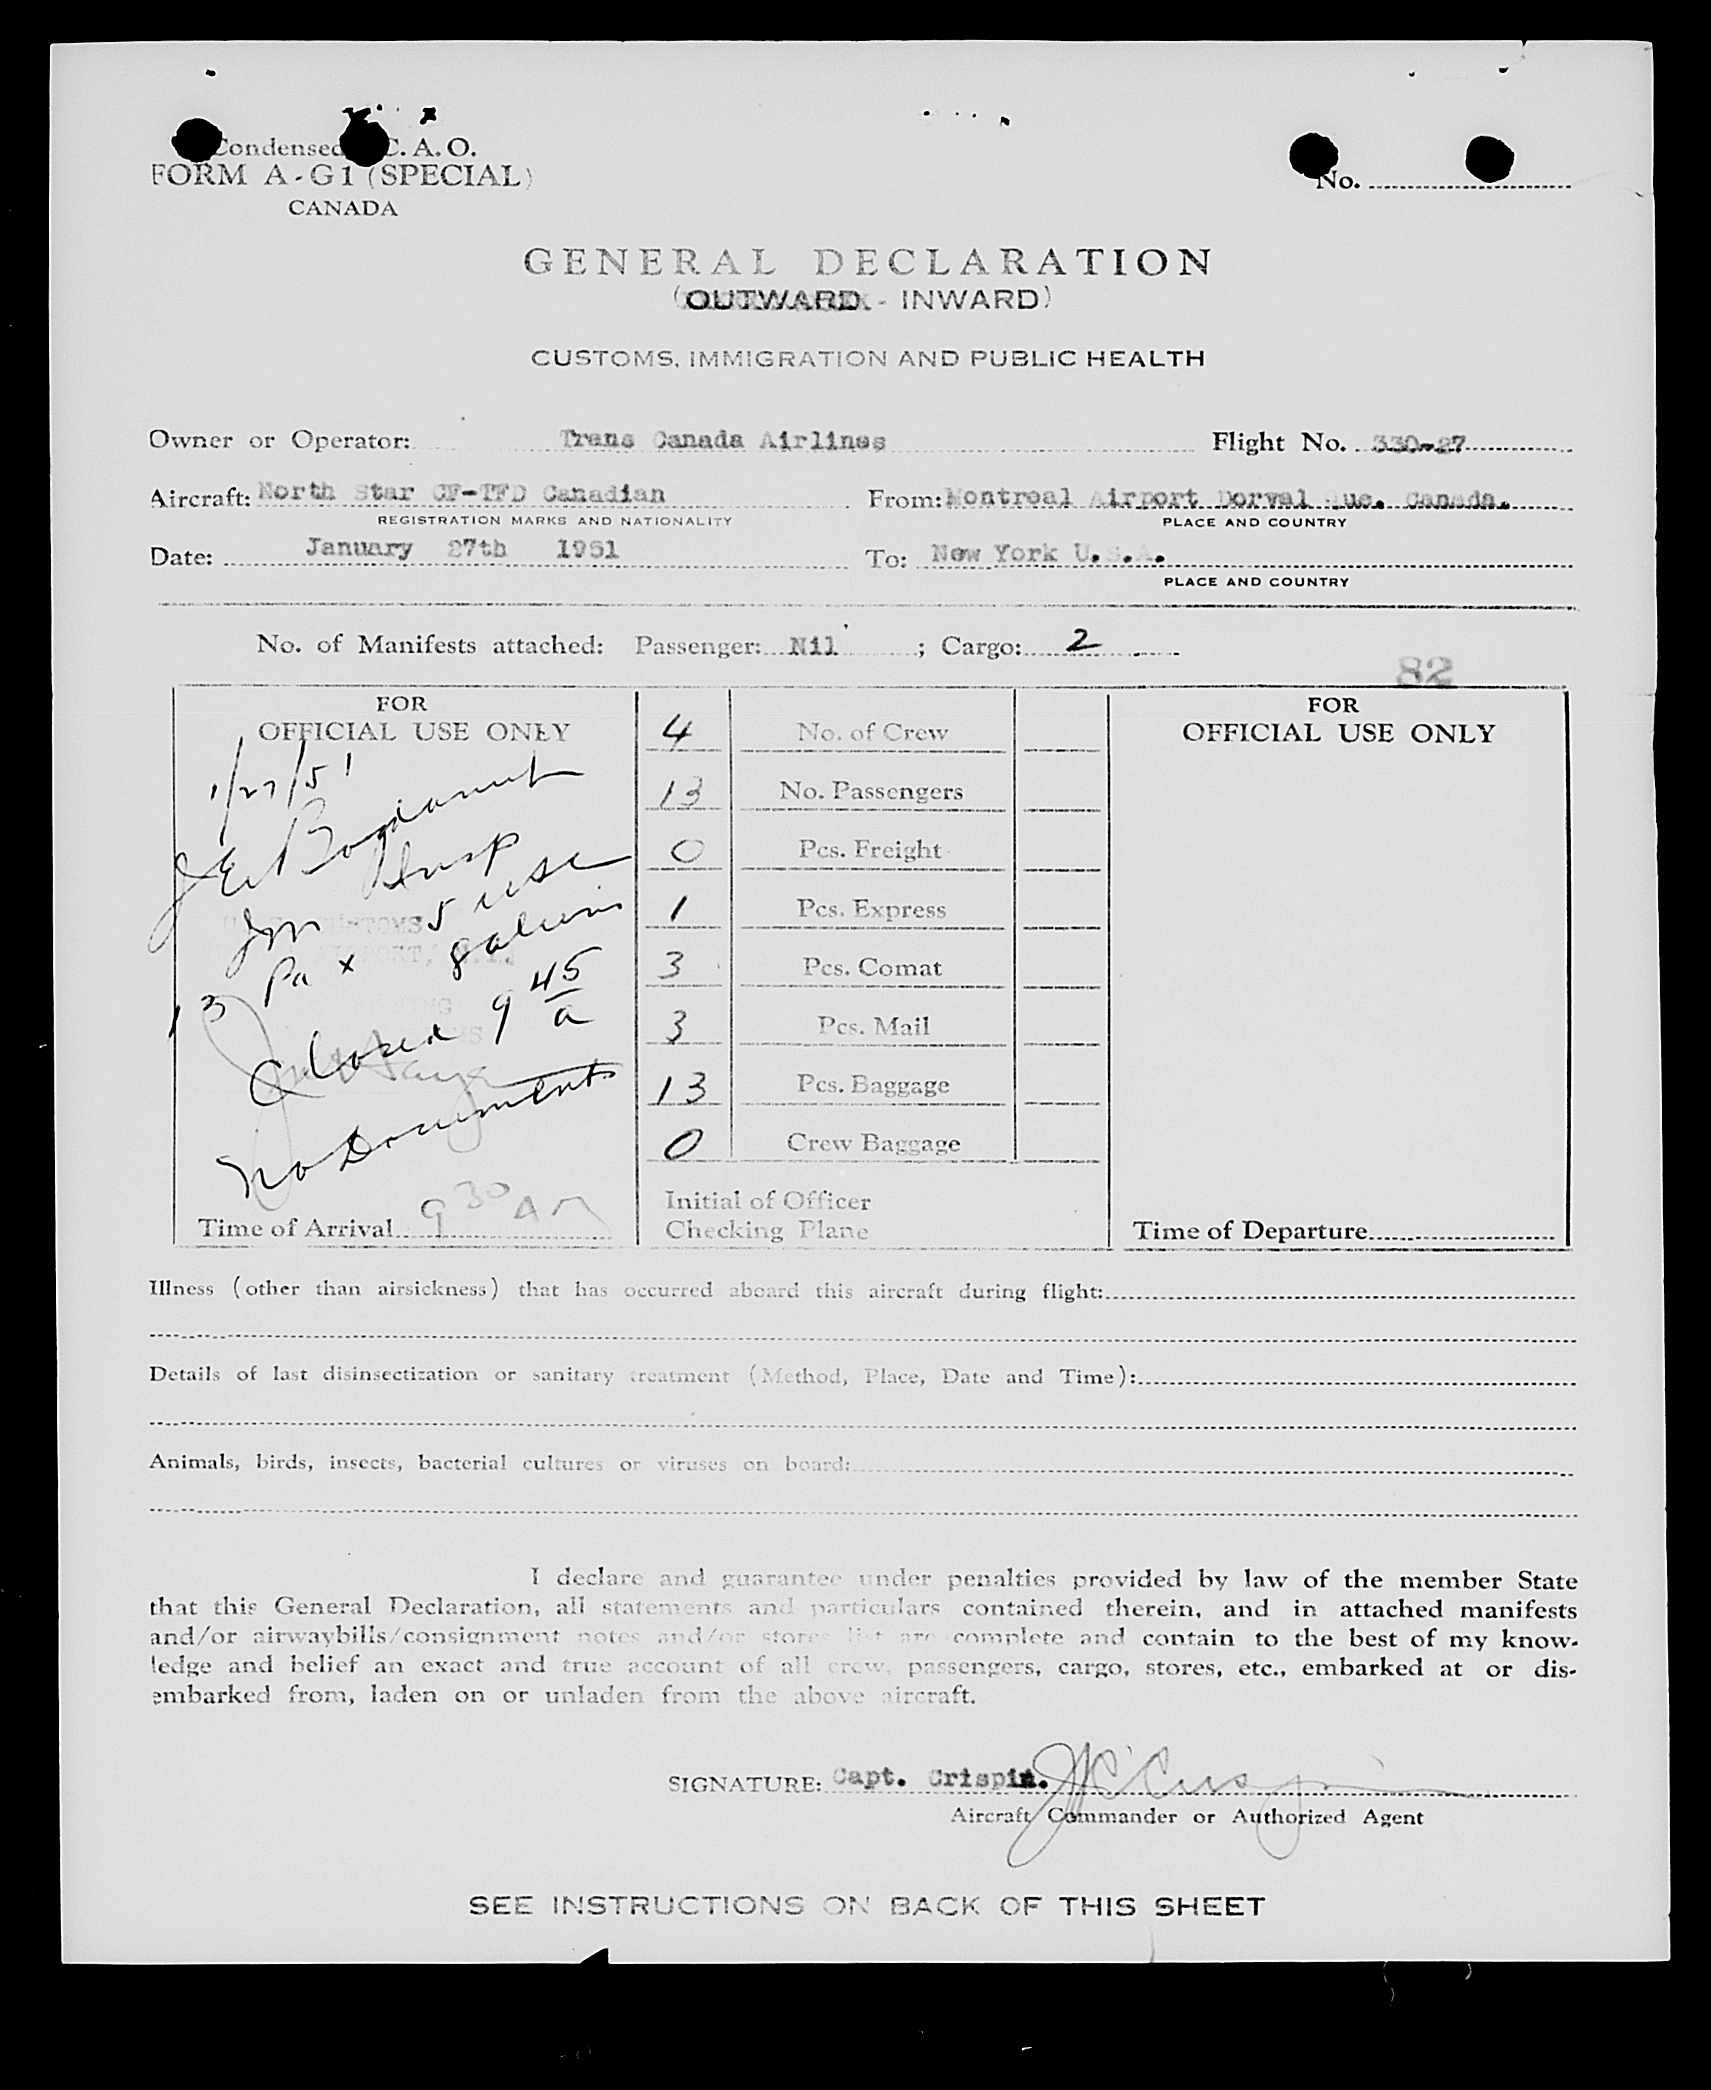 Condensed C. A. O.
FORM A-G1 (SPECIAL)
CANADA
No.
GENERAL DECLARATION
(OUTWARD - INWARD)
CUSTOMS, IMMIGRATION AND PUBLIC HEALTH
Owner or Operator: Trans Canada Airlines Flight No. 330-27
Aircraft: North Star CF-TFD Canadian From: Montreal Airport Dorval Que. Canada.
REGISTRATION MARKS AND NATIONALITY PLACE AND COUNTRY
Date: January 27th 1951 To: New York U.S.A.
PLACE AND COUNTRY
No. of Manifests attached: Passenger: Nil ; Cargo: 2
82
FOR
OFFICIAL USE ONLY
1/27/51
Insp
5 usc
13 Pax 8 aliens
Closed 9 45 a
No Documents
Time of Arrival 9 30 AM
4 No. of Crew
13 No. Passengers
0 Pcs. Freight
1 Pcs. Express
3 Pcs. Comat
3 Pcs. Mail
13 Pcs. Baggage
0 Crew Baggage
Initial of Officer
Checking Plane
FOR
OFFICIAL USE ONLY
Time of Departure
Illness (other than airsickness) that has occurred aboard this aircraft during flight:
Details of last disinsectization or sanitary treatment (Method, Place, Date and Time):
Animals, birds, insects, bacterial cultures or viruses on board:
I declare and guarantee under penalties provided by law of the member State
that this General Declaration, all statements and particulars contained therein, and in attached manifests
and/or airwaybills/consignment notes and/or stores list are complete and contain to the best of my know-
ledge and belief an exact and true account of all crew, passengers, cargo, stores, etc., embarked at or dis-
embarked from, laden on or unladen from the above aircraft.
SIGNATURE: Capt. Crispin. J C Crispin
Aircraft Commander or Authorized Agent
SEE INSTRUCTIONS ON BACK OF THIS SHEET